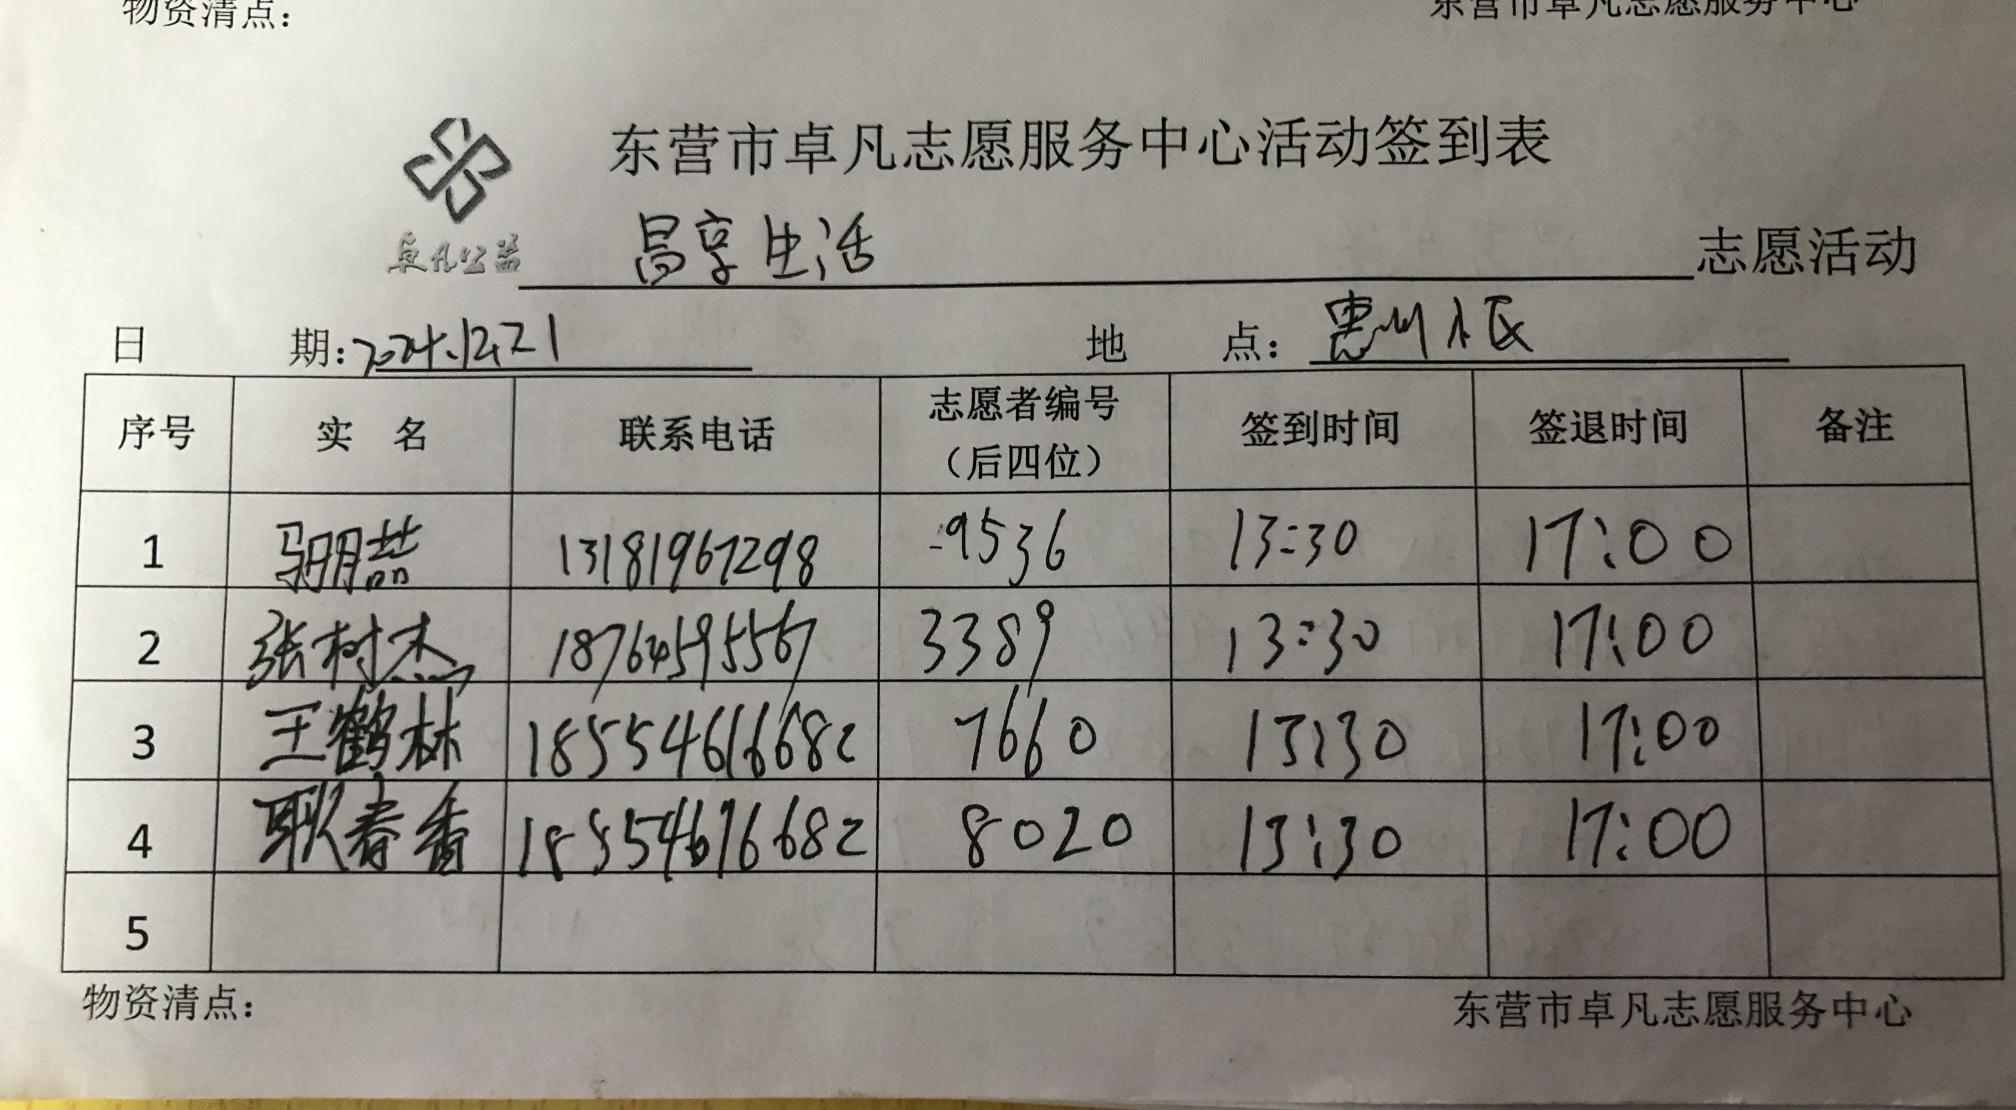 物资清点：
东营市卓凡志愿服务中心
东营市卓凡志愿服务中心活动签到表
卓凡公益
昌享生活 志愿活动
日 期：2024.12.21 地 点：惠州
序号 实 名 联系电话 志愿者编号（后四位） 签到时间 签退时间 备注
1 13181967298 9536 13:30 17:00
2 张树杰 18764595567 3389 13:30 17:00
3 王鹤林 18554616682 7660 13:30 17:00
4 耿春香 18554676682 8020 13:30 17:00
5
物资清点：
东营市卓凡志愿服务中心